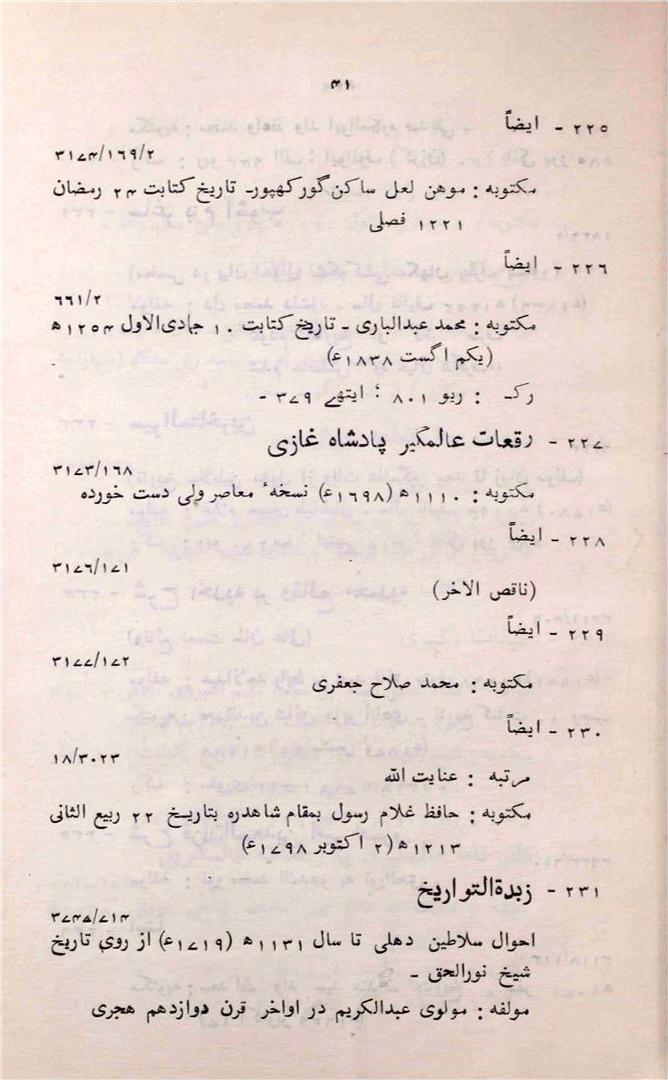 ۴۱
۲۲۵ - ایضاً
۳۱۷۴/۱۶۹/۲
مکتوبه : موهن لعل ساکن گورکهپور۔ تاریخ کتابت ۲۴ رمضان
۱۲۲۱ فصلی
۲۲۶ - ایضاً
۶۶۱/۲
مکتوبه : محمد عبدالباری - تاریخ کتابت ۱۰ جمادی‌الاول ۱۲۵۴ھ
(یکم اگست ۱۸۳۸ع)
رک : ریو ۸۰۱ ؛ ایتھے ۳۷۹ -
۲۲۷ - رقعات عالمگیر پادشاه غازی
۳۱۷۳/۱۶۸
مکتوبه : ۱۱۱۰ھ (۱۶۹۸ع) نسخهٔ معاصر ولی دست خورده
۲۲۸ - ایضاً
۳۱۷۶/۱۷۱
(ناقص الاخر)
۲۲۹ - ایضاً
۳۱۷۷/۱۷۲
مکتوبه : محمد صلاح جعفری
۲۳۰ - ایضاً
۱۸/۳۰۲۳
مرتبه : عنایت الله
مکتوبه : حافظ غلام رسول بمقام شاهدره بتاریخ ۲۲ ربیع الثانی
۱۲۱۳ھ (۲ اکتوبر ۱۷۹۸ع)
۲۳۱ - زبدةالتواریخ
۳۷۴۵/۷۱۴
احوال سلاطین دهلی تا سال ۱۱۳۱ھ (۱۷۱۹ع) از روی تاریخ
شیخ نورالحق -
مولفه : مولوی عبدالکریم در اواخر قرن دوازدهم هجری